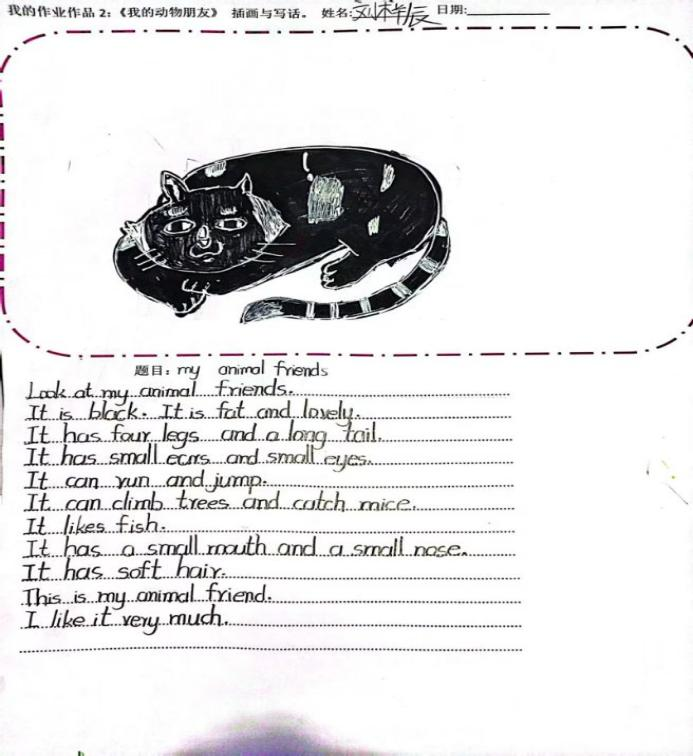 我的作业作品2:《我的动物朋友》 插画与写话。 姓名:刘梓辰 日期:
题目:my animal friends
Look at my animal friends.
It is black. It is fat and lovely.
It has four legs and a long tail.
It has small ears and small eyes.
It can run and jump.
It can climb trees and catch mice.
It likes fish.
It has a small mouth and a small nose.
It has soft hair.
This is my animal friend.
I like it very much.